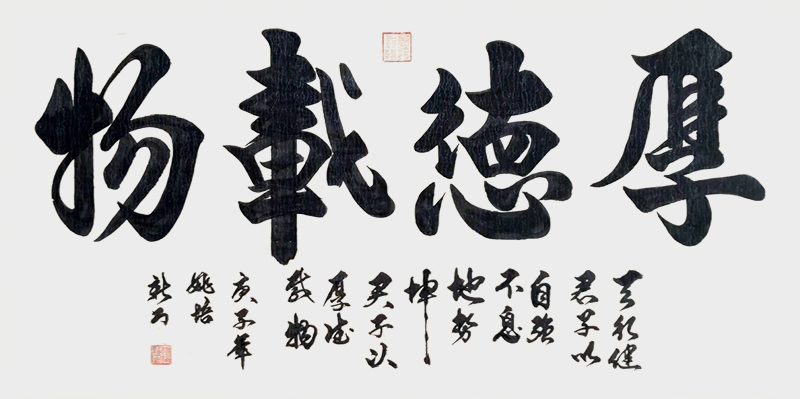 厚德載物
天行健
君子以
自强
不息
地势
坤
君子以
厚德
载物
庚子年
姚培
新